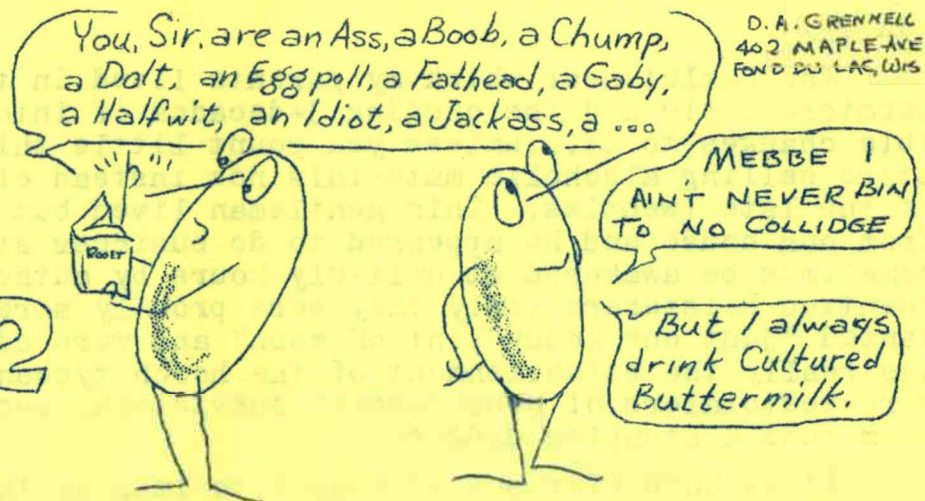 You, Sir, are an Ass, a Boob, a Chump,
a Dolt an Eggpoll, a Fathead, a Gaby,
a Halfwit, an Idiot, a Jackass, a ...
D. A. GRENNELL
402 MAPLE AVE
FOND DU LAC, WIS
MEBBE I
AINT NEVER BIN
TO NO COLLIDGE
But I always
drink Cultured
Buttermilk.